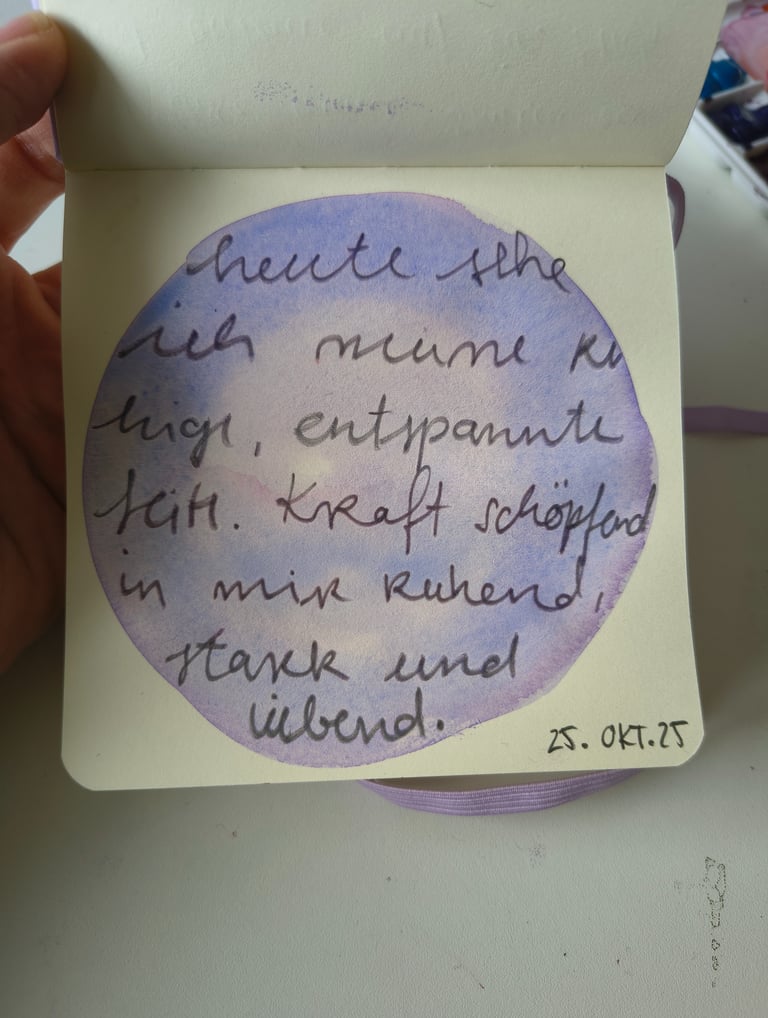 heute sehe
ich meine ru
hige, entspannte
Seite. Kraft schöpfend
in mir ruhend,
stark und
liebend.
25. OKT. 25